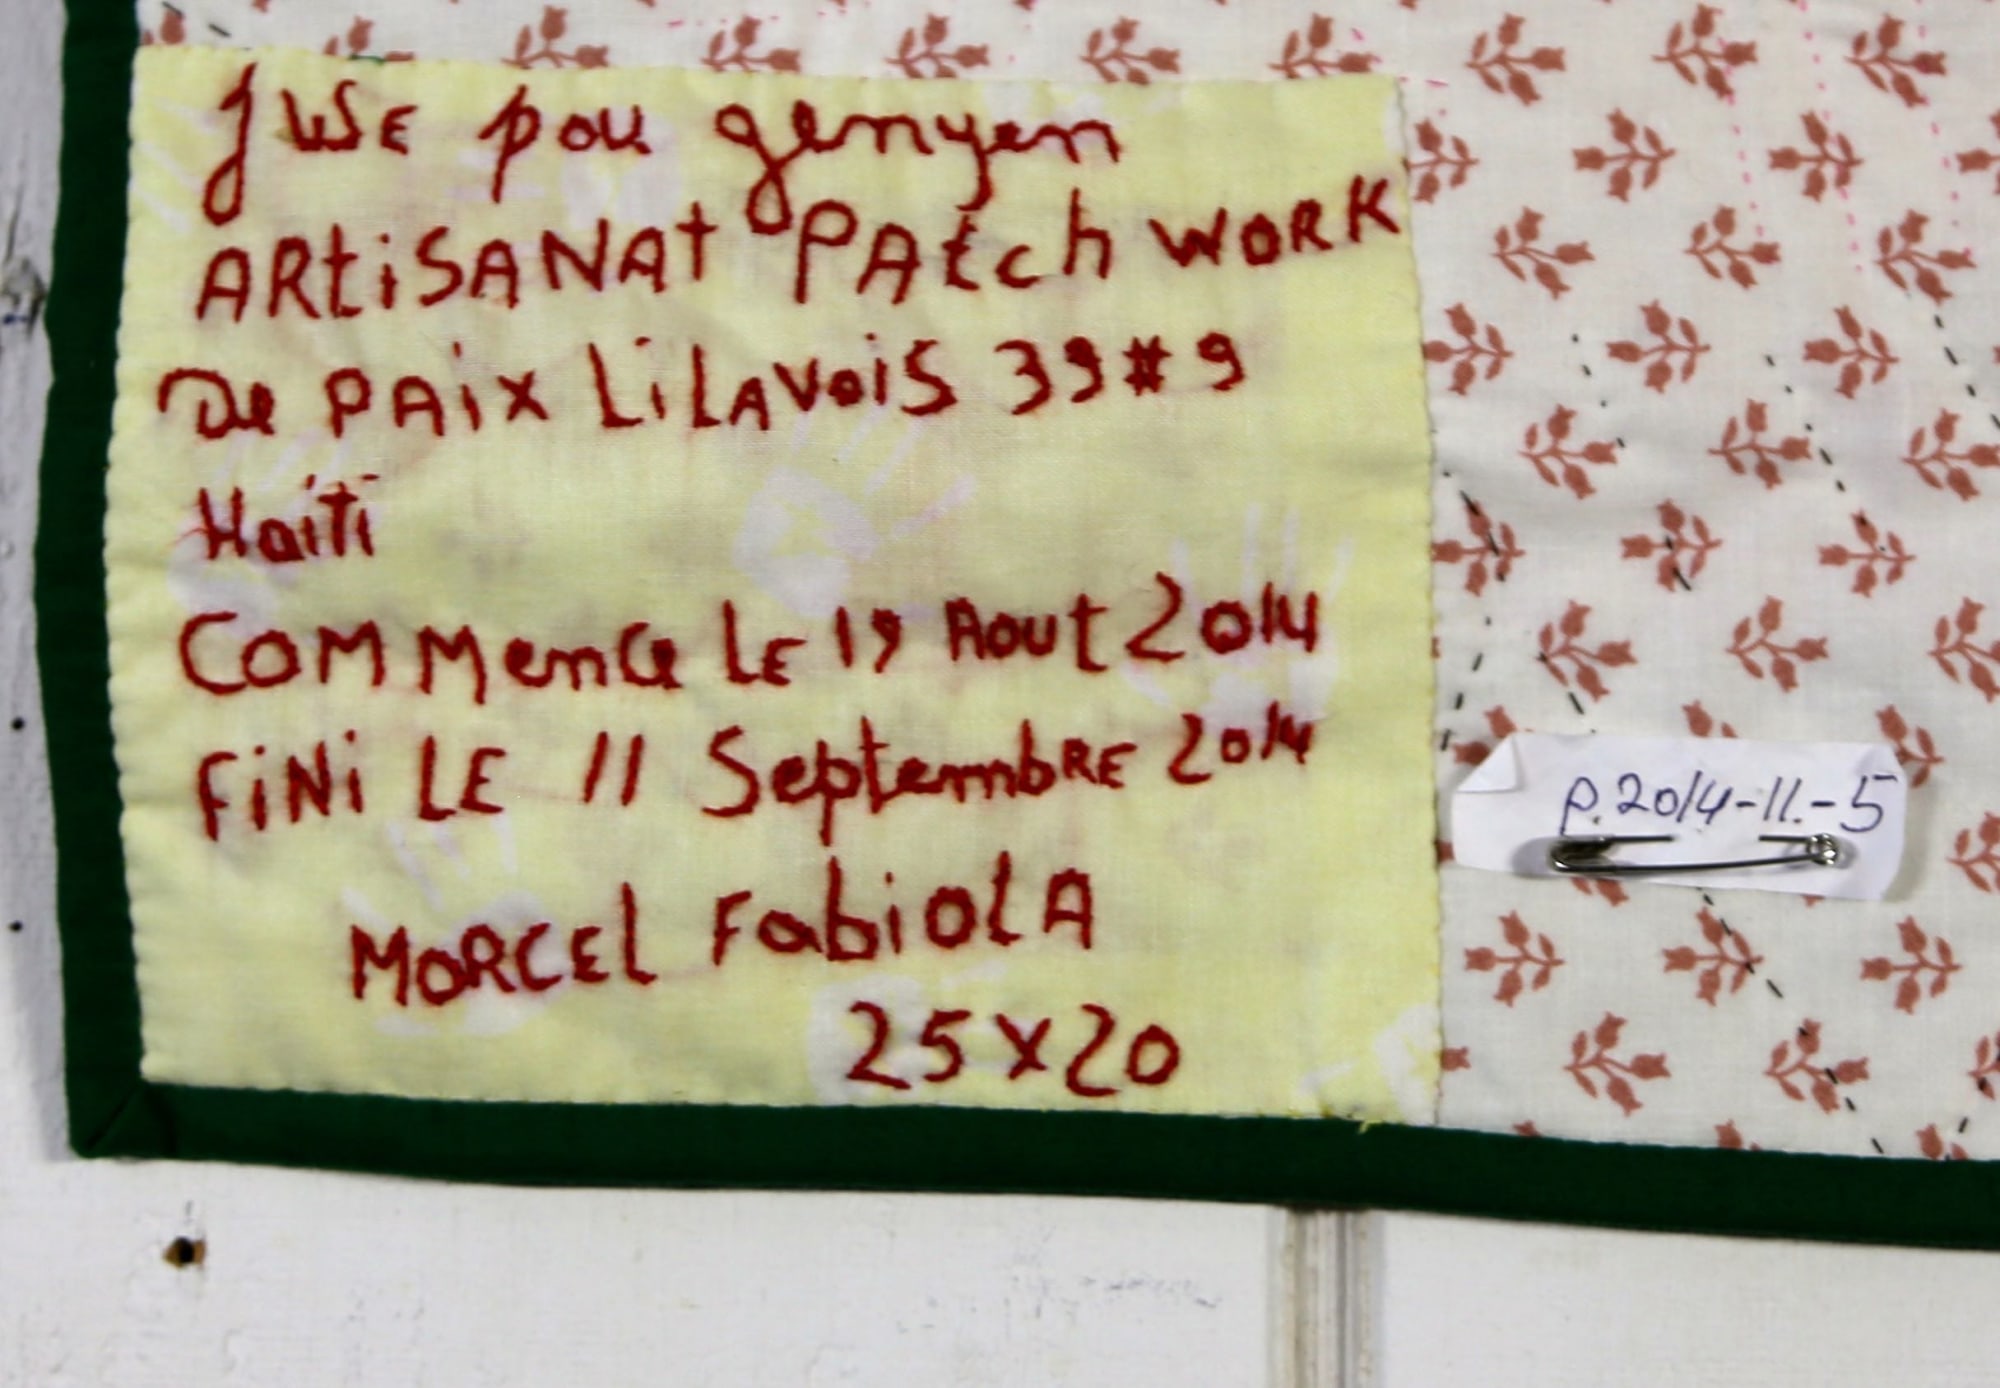 JWSE pou genyen
ARtiSANAt PAtch WORK
De PAix LiLAVoiS 39#9
Haiti
COMMence LE 19 Aout 2014
FiNi LE 11 SeptembRE 2014
MORCEl FabiOlA
25x20
P.2014-11.-5